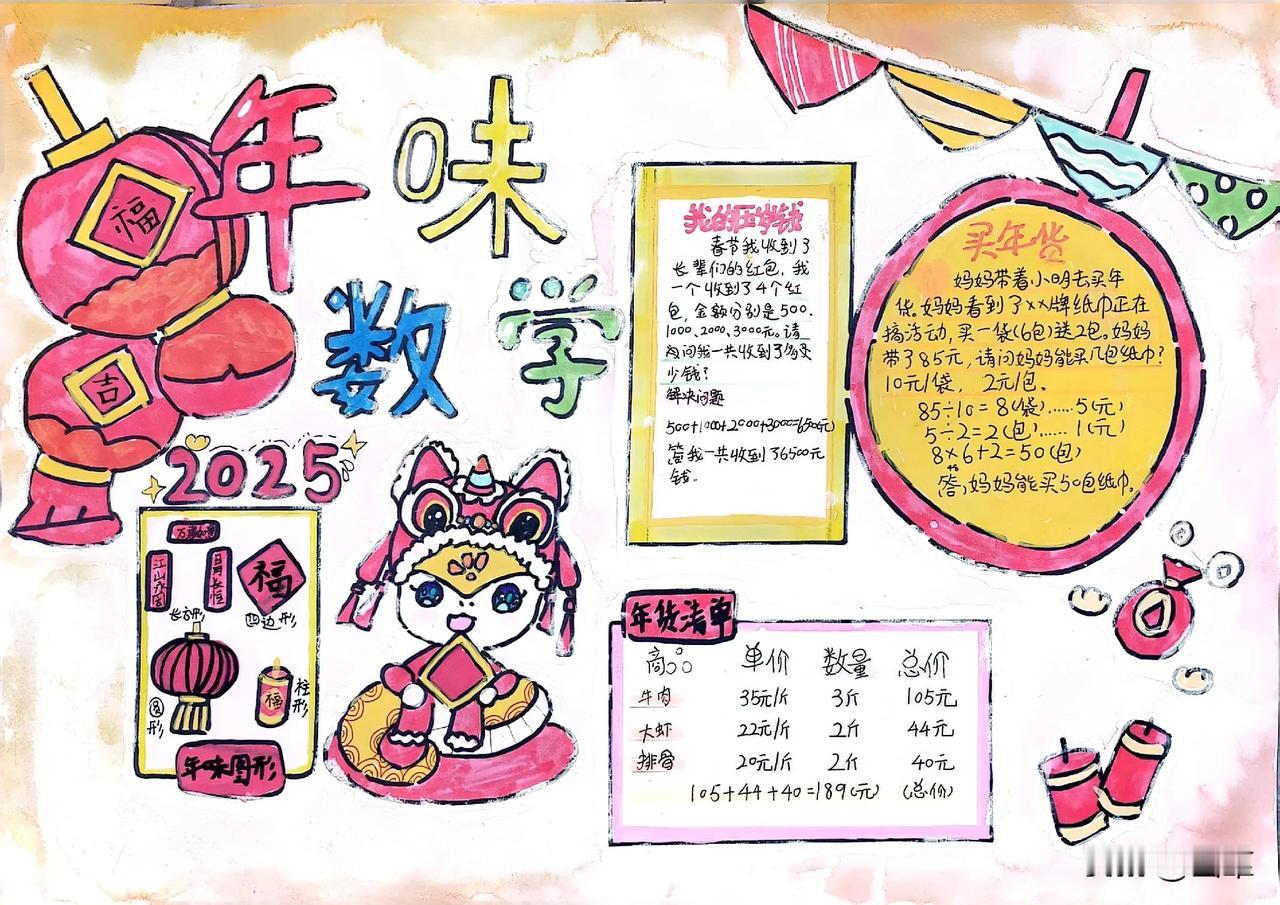 福
吉
年味
数学
2025
我的压岁钱
春节我收到了
长辈们的红包，我
一个收到了4个红
包，金额分别是500、
1000、2000、3000元。请
问我一共收到了多
少钱？
解决问题
500+1000+2000+3000=6500(元)
答我一共收到了6500元
钱。
买年货
妈妈带着小明去买年
货。妈妈看到了××牌纸巾正在
搞活动，买一袋(6包)送2包。妈妈
带了85元，请问妈妈能买几包纸巾？
10元/袋， 2元/包。
85÷10=8(袋)……5(元)
5÷2=2(包)……1(元)
8×6+2=50(包)
答，妈妈能买50包纸巾。
江山
日月长恒
福
长方形
四边形
圆形
福
柱形
年味图形
年货清单
商品 单价 数量 总价
牛肉 35元/斤 3斤 105元
大虾 22元/斤 2斤 44元
排骨 20元/斤 2斤 40元
105+44+40=189(元) (总价)